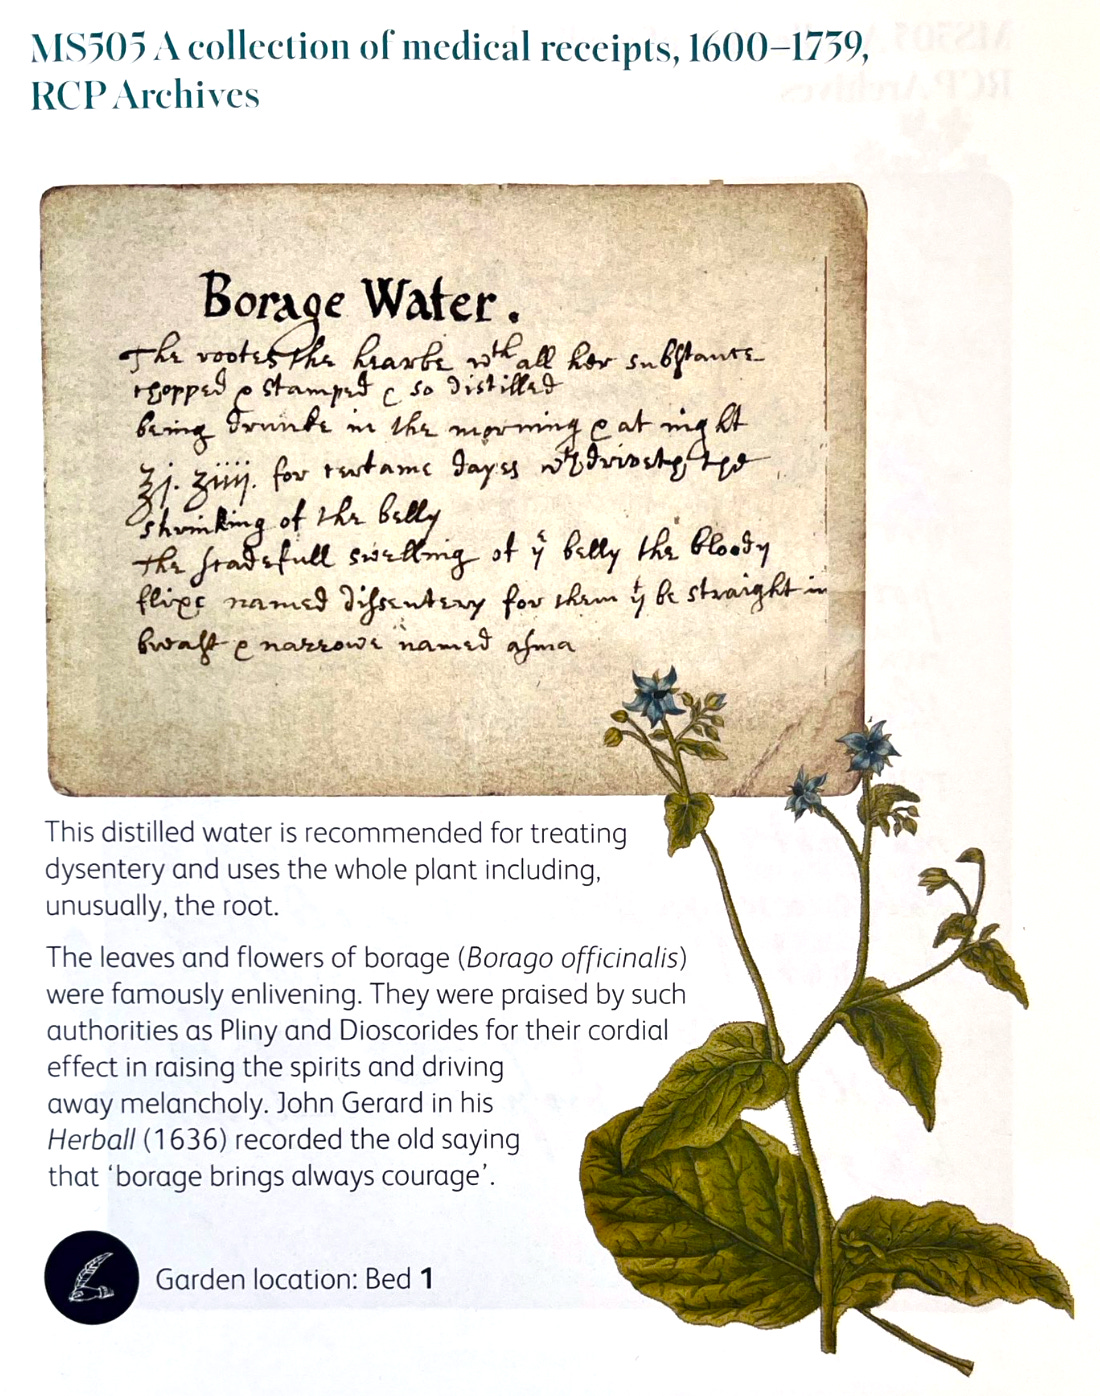 MS505 A collection of medical receipts, 1600–1739,
RCP Archives
Borage Water.
The rootes the hearbe wth all her substance
chopped & stamped & so distilled
being drunke in the morning & at night
ʒj. ʒiiij. for certaine dayes
shrinking of the belly
the swelling of ye belly the bloody
flixe named dissentery for them yt be straight in
brast & narrowe named asma
This distilled water is recommended for treating
dysentery and uses the whole plant including,
unusually, the root.
The leaves and flowers of borage (Borago officinalis)
were famously enlivening. They were praised by such
authorities as Pliny and Dioscorides for their cordial
effect in raising the spirits and driving
away melancholy. John Gerard in his
Herball (1636) recorded the old saying
that ‘borage brings always courage’.
Garden location: Bed 1